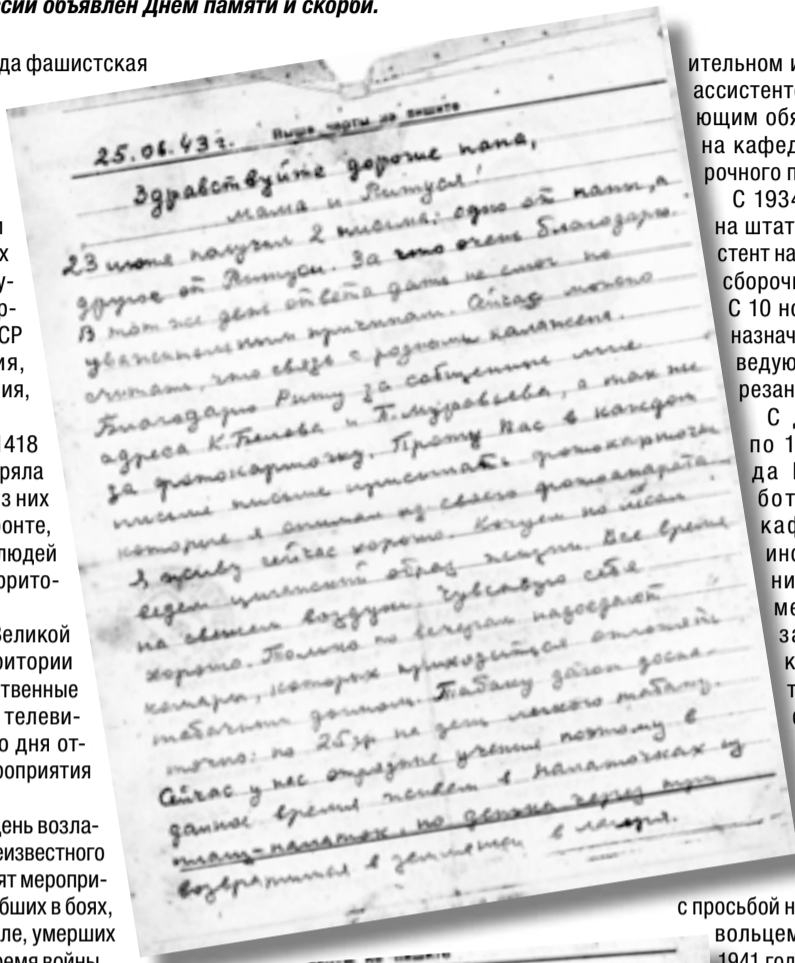 сии объявлен Днем памяти и скорби.
да фашистская
х
у-
р-
СР
ия,
ия,
1418
ряла
з них
онте,
людей
ррито-
Великой
ритории
ственные
телеви-
о дня от-
роприятия
ень возла-
еизвестного
ят меропри-
бших в боях,
ле, умерших
ремя войны
25.06.43 г. Выше черты не пишите
Здравствуйте дорогие папа,
мама и Ритуся!
23 июня получил 2 письма: одно от папы, а
другое от Ритуси. За что очень благодарю.
В тот же день ответа дать не смог по
уважительным причинам. Сейчас можно
считать, что связь с родными налажена.
Благодарю Риту за сообщение мне
адреса К. Белова и П. Муравьева, а так же
за фотокарточку. Прошу Вас в каждом
письме присылать фотокарточки
которые я снимал из своего фотоаппарата.
Я живу сейчас хорошо. Кочуем по лесам
ведем цыганский образ жизни. Все время
на свежем воздухе. Чувствую себя
хорошо. Только по вечерам надоедают
комары, которых приходится отгонять
табачным дымом. Табаку дают доста-
точно: по 25 гр на день легкого табаку.
Сейчас у нас учения поэтому в
данное время живем в палаточках из
плащ-палаток, но должны через
возвратимся в землянки в лагеря.
не пишите
ительном и
ассистенто
ющим обя
на кафед
рочного п
С 1934
на штат
стент на
сборочн
С 10 но
назнач
ведую
резан
С
по 1
да
бот
каф
инс
ни
ме
за
к
т
с просьбой н
вольцем
1941 год